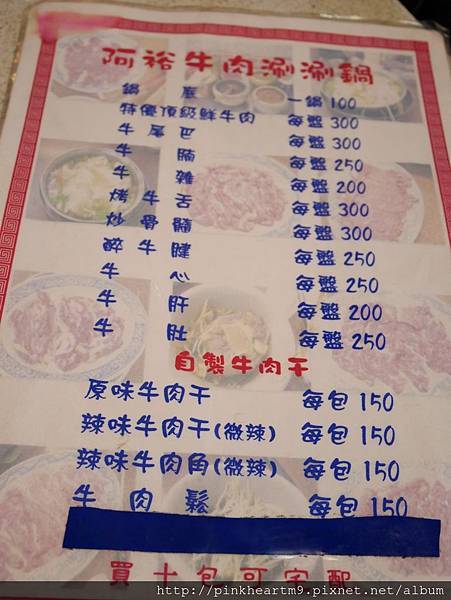 阿裕牛肉涮涮鍋
鍋底 一鍋 100
特優頂級鮮牛肉 每盤 300
牛尾巴 每盤 300
牛腩 每盤 250
牛雜 每盤 200
烤牛舌 每盤 300
炒骨髓 每盤 300
醉牛腱 每盤 250
牛心 每盤 250
牛肝 每盤 200
牛肚 每盤 250
自製牛肉干
原味牛肉干 每包 150
辣味牛肉干(微辣) 每包 150
辣味牛肉角(微辣) 每包 150
牛肉鬆 每包 150
買十包可宅配
http://pinkheartm9.pixnet.net/album